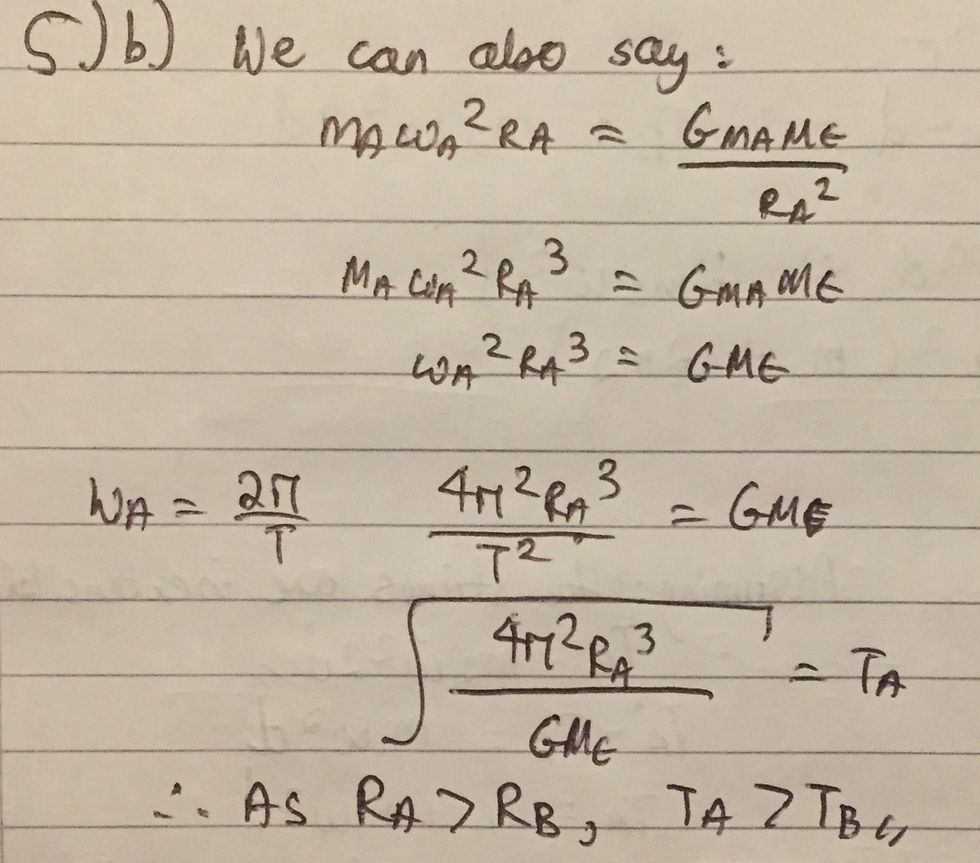 5)b) We can also say:
mAωA²RA = GmAME / RA²
MAωA²RA³ = GmAME
ωA²RA³ = GME
WA = 2π / T    4π²RA³ / T² = GME
√(4π²RA³ / GME) = TA
∴ As RA > RB, TA > TB,,